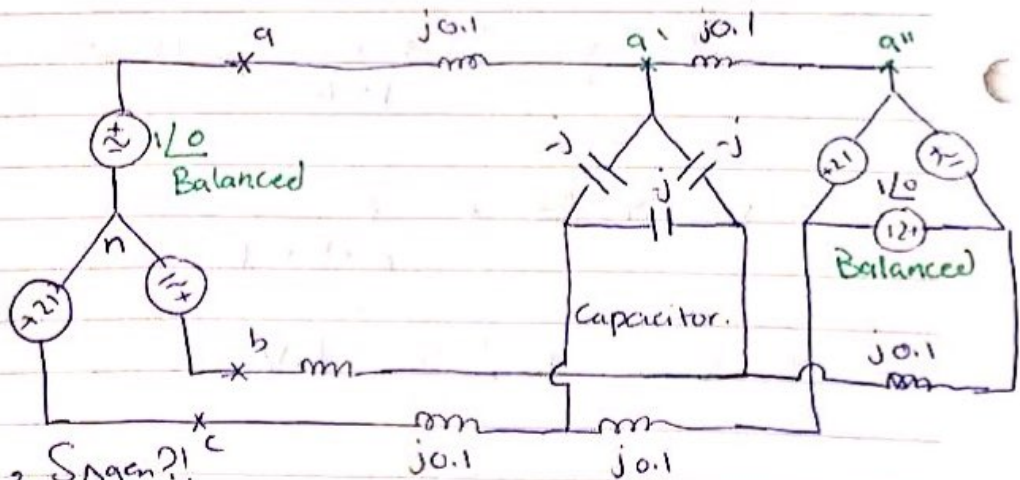 a
j0.1
a'
j0.1
a''
1∠0
Balanced
n
-j
-j
-j
1∠0
Balanced
Capacitor.
b
j0.1
c
j0.1
j0.1